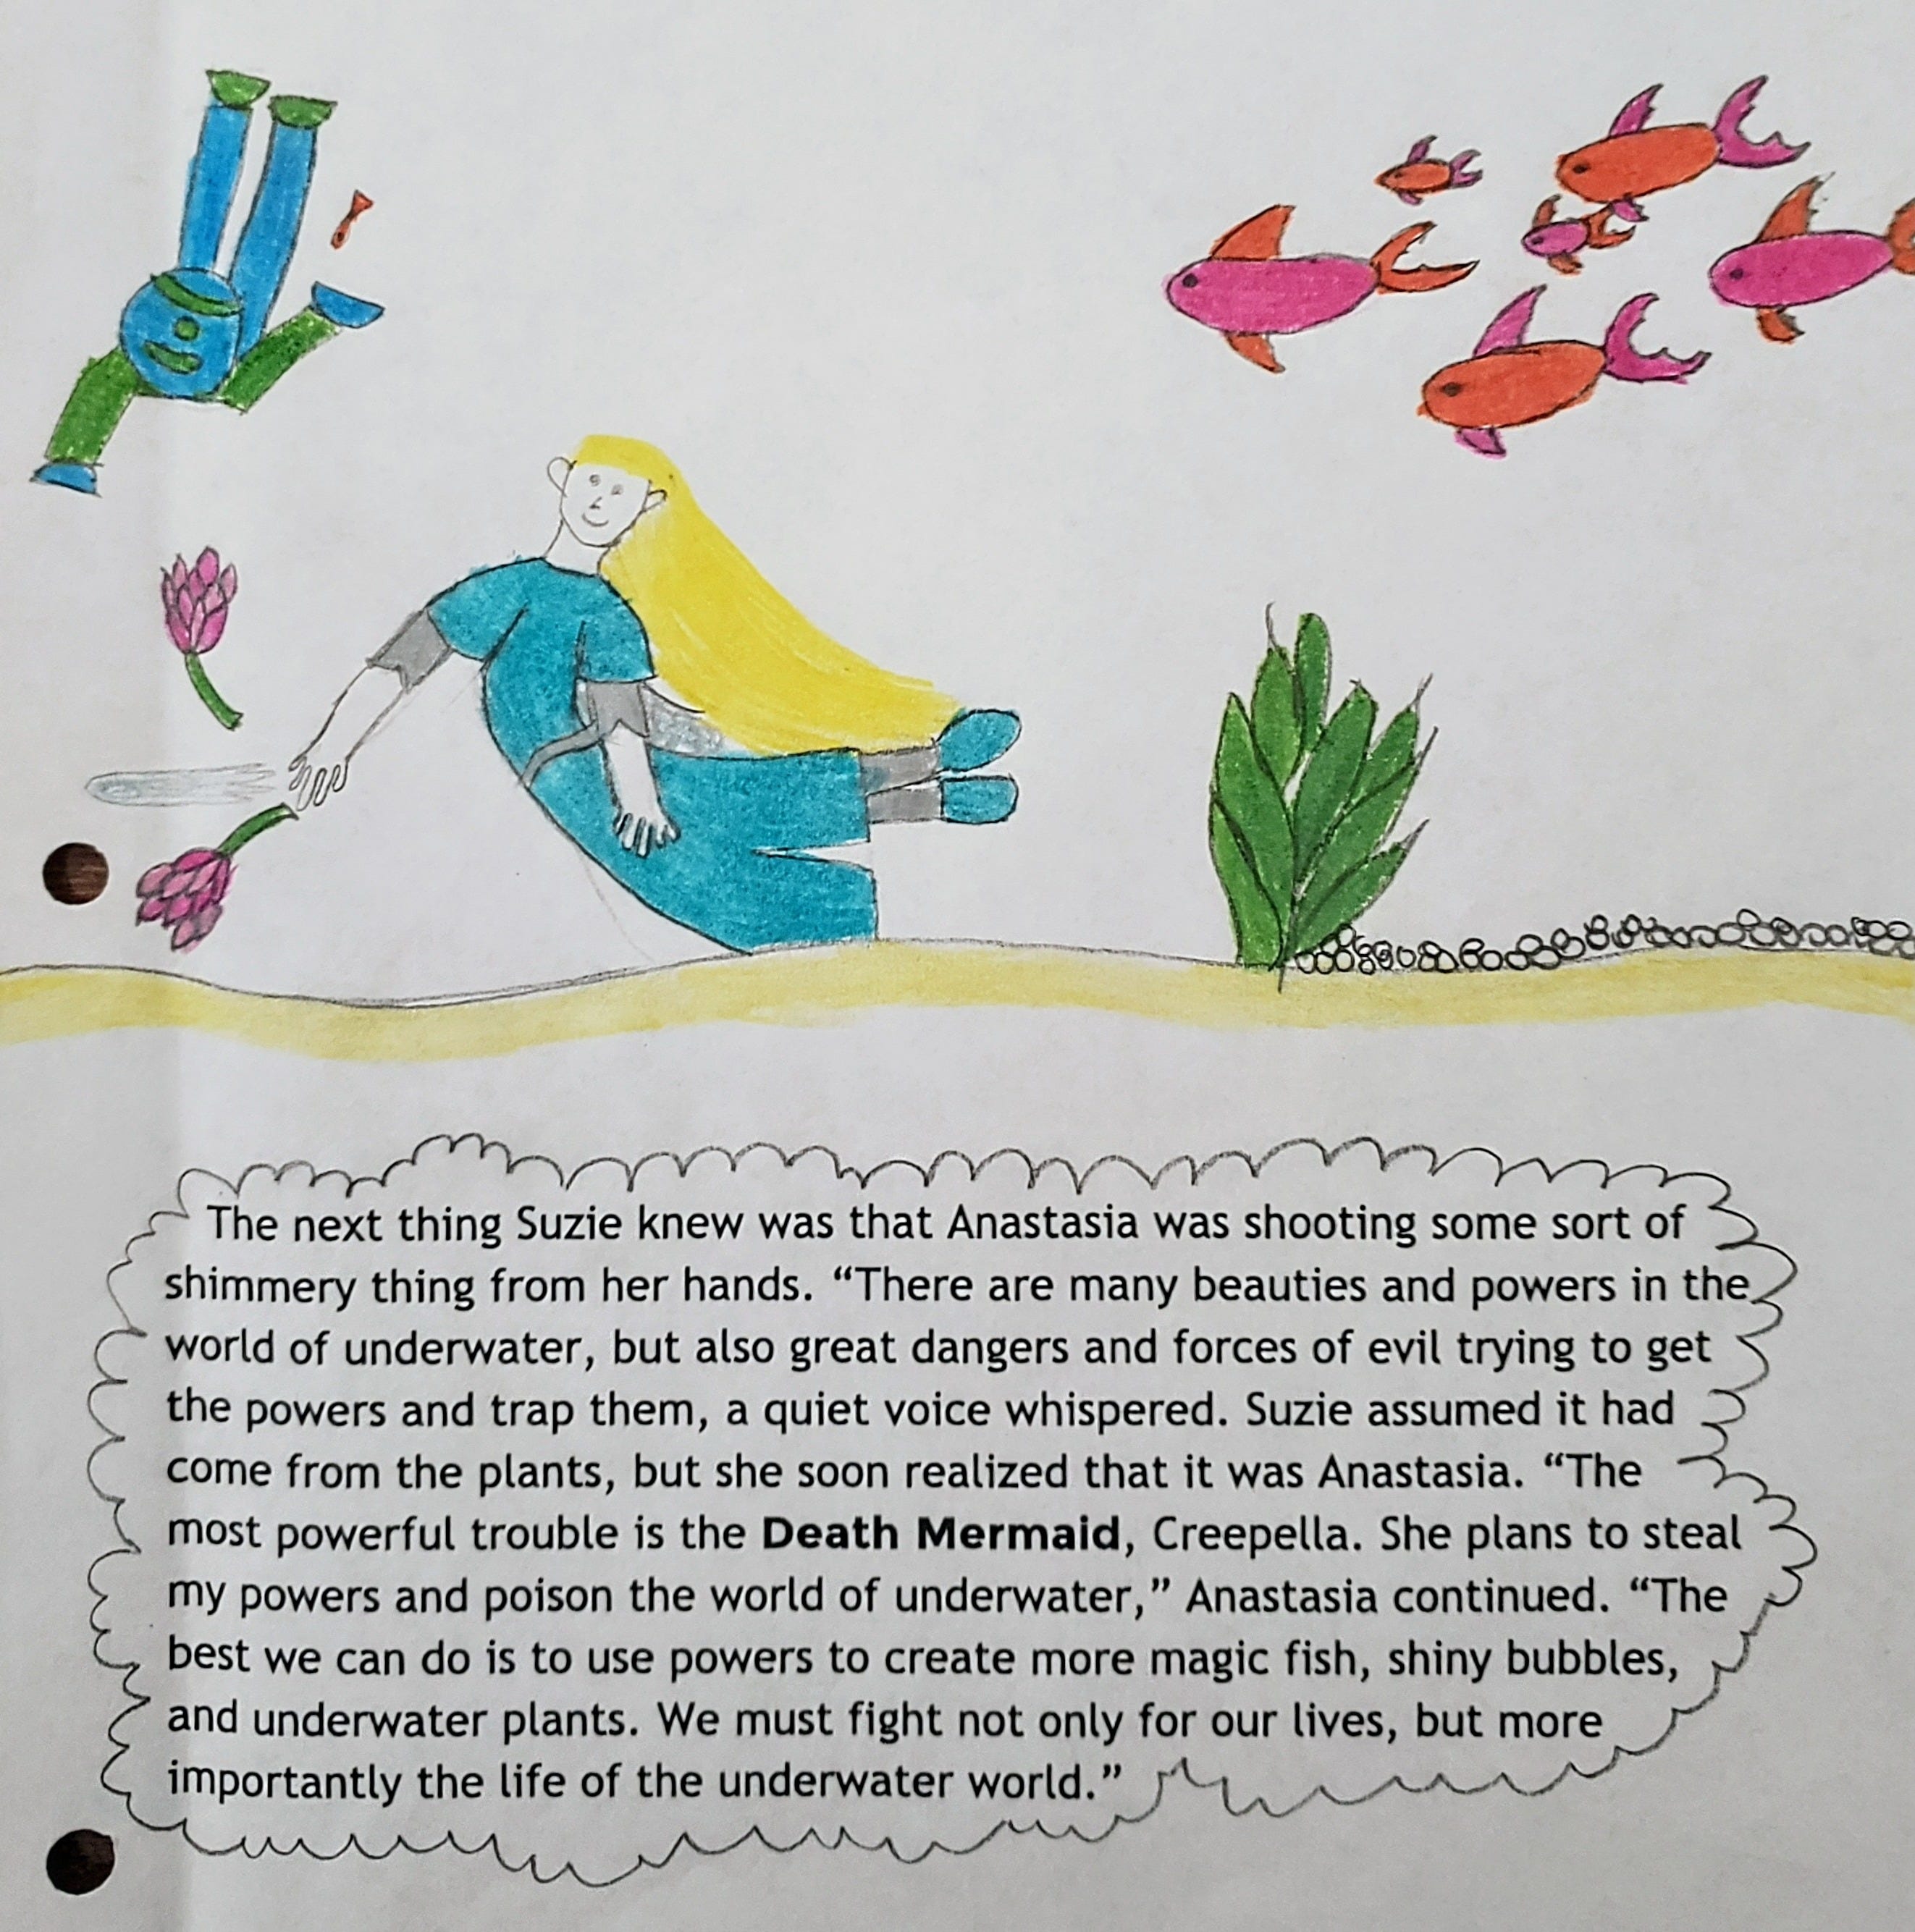 The next thing Suzie knew was that Anastasia was shooting some sort of
shimmery thing from her hands. “There are many beauties and powers in the
world of underwater, but also great dangers and forces of evil trying to get
the powers and trap them, a quiet voice whispered. Suzie assumed it had
come from the plants, but she soon realized that it was Anastasia. “The
most powerful trouble is the Death Mermaid, Creepella. She plans to steal
my powers and poison the world of underwater,” Anastasia continued. “The
best we can do is to use powers to create more magic fish, shiny bubbles,
and underwater plants. We must fight not only for our lives, but more
importantly the life of the underwater world.”